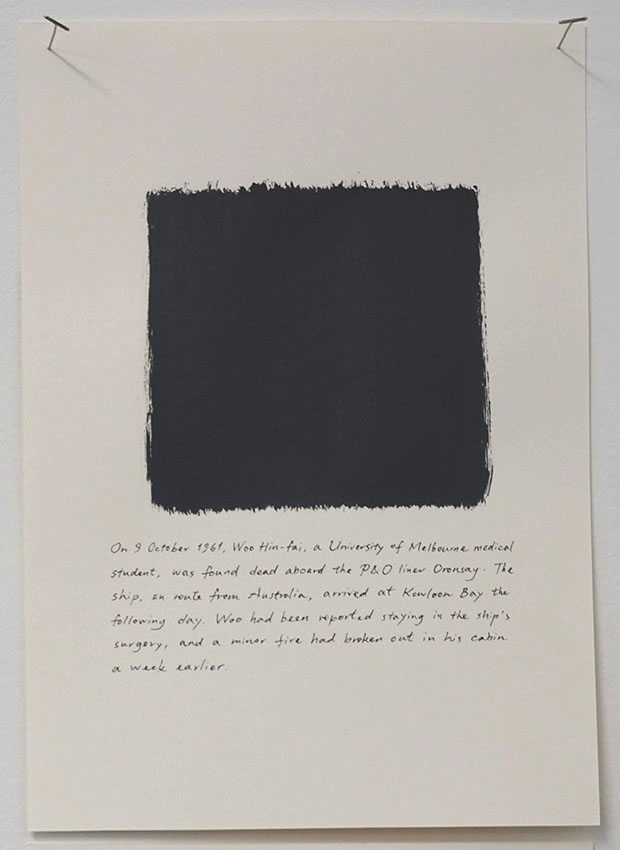 On 9 October 1961, Woo Hin-fai, a University of Melbourne medical
student, was found dead aboard the P&O liner Oronsay. The
ship, en route from Australia, arrived at Kowloon Bay the
following day. Woo had been reported staying in the ship's
surgery, and a minor fire had broken out in his cabin
a week earlier.